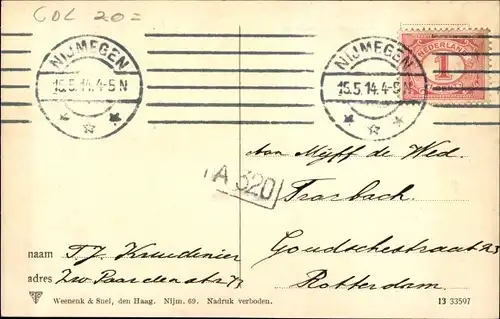 CDL 20=
NIJMEGEN
15.5.14.4-5N
NIJMEGEN
15.5.14.4-5N
NEDERLAND
1
Aan Mejff de Wed.
Trarbach.
Goudschestraat 23
Rotterdam.
A 320
naam T. J.
adres Zw Paardenstr
Weenenk & Snel, den Haag. Nijm. 69. Nadruk verboden.
13 33597